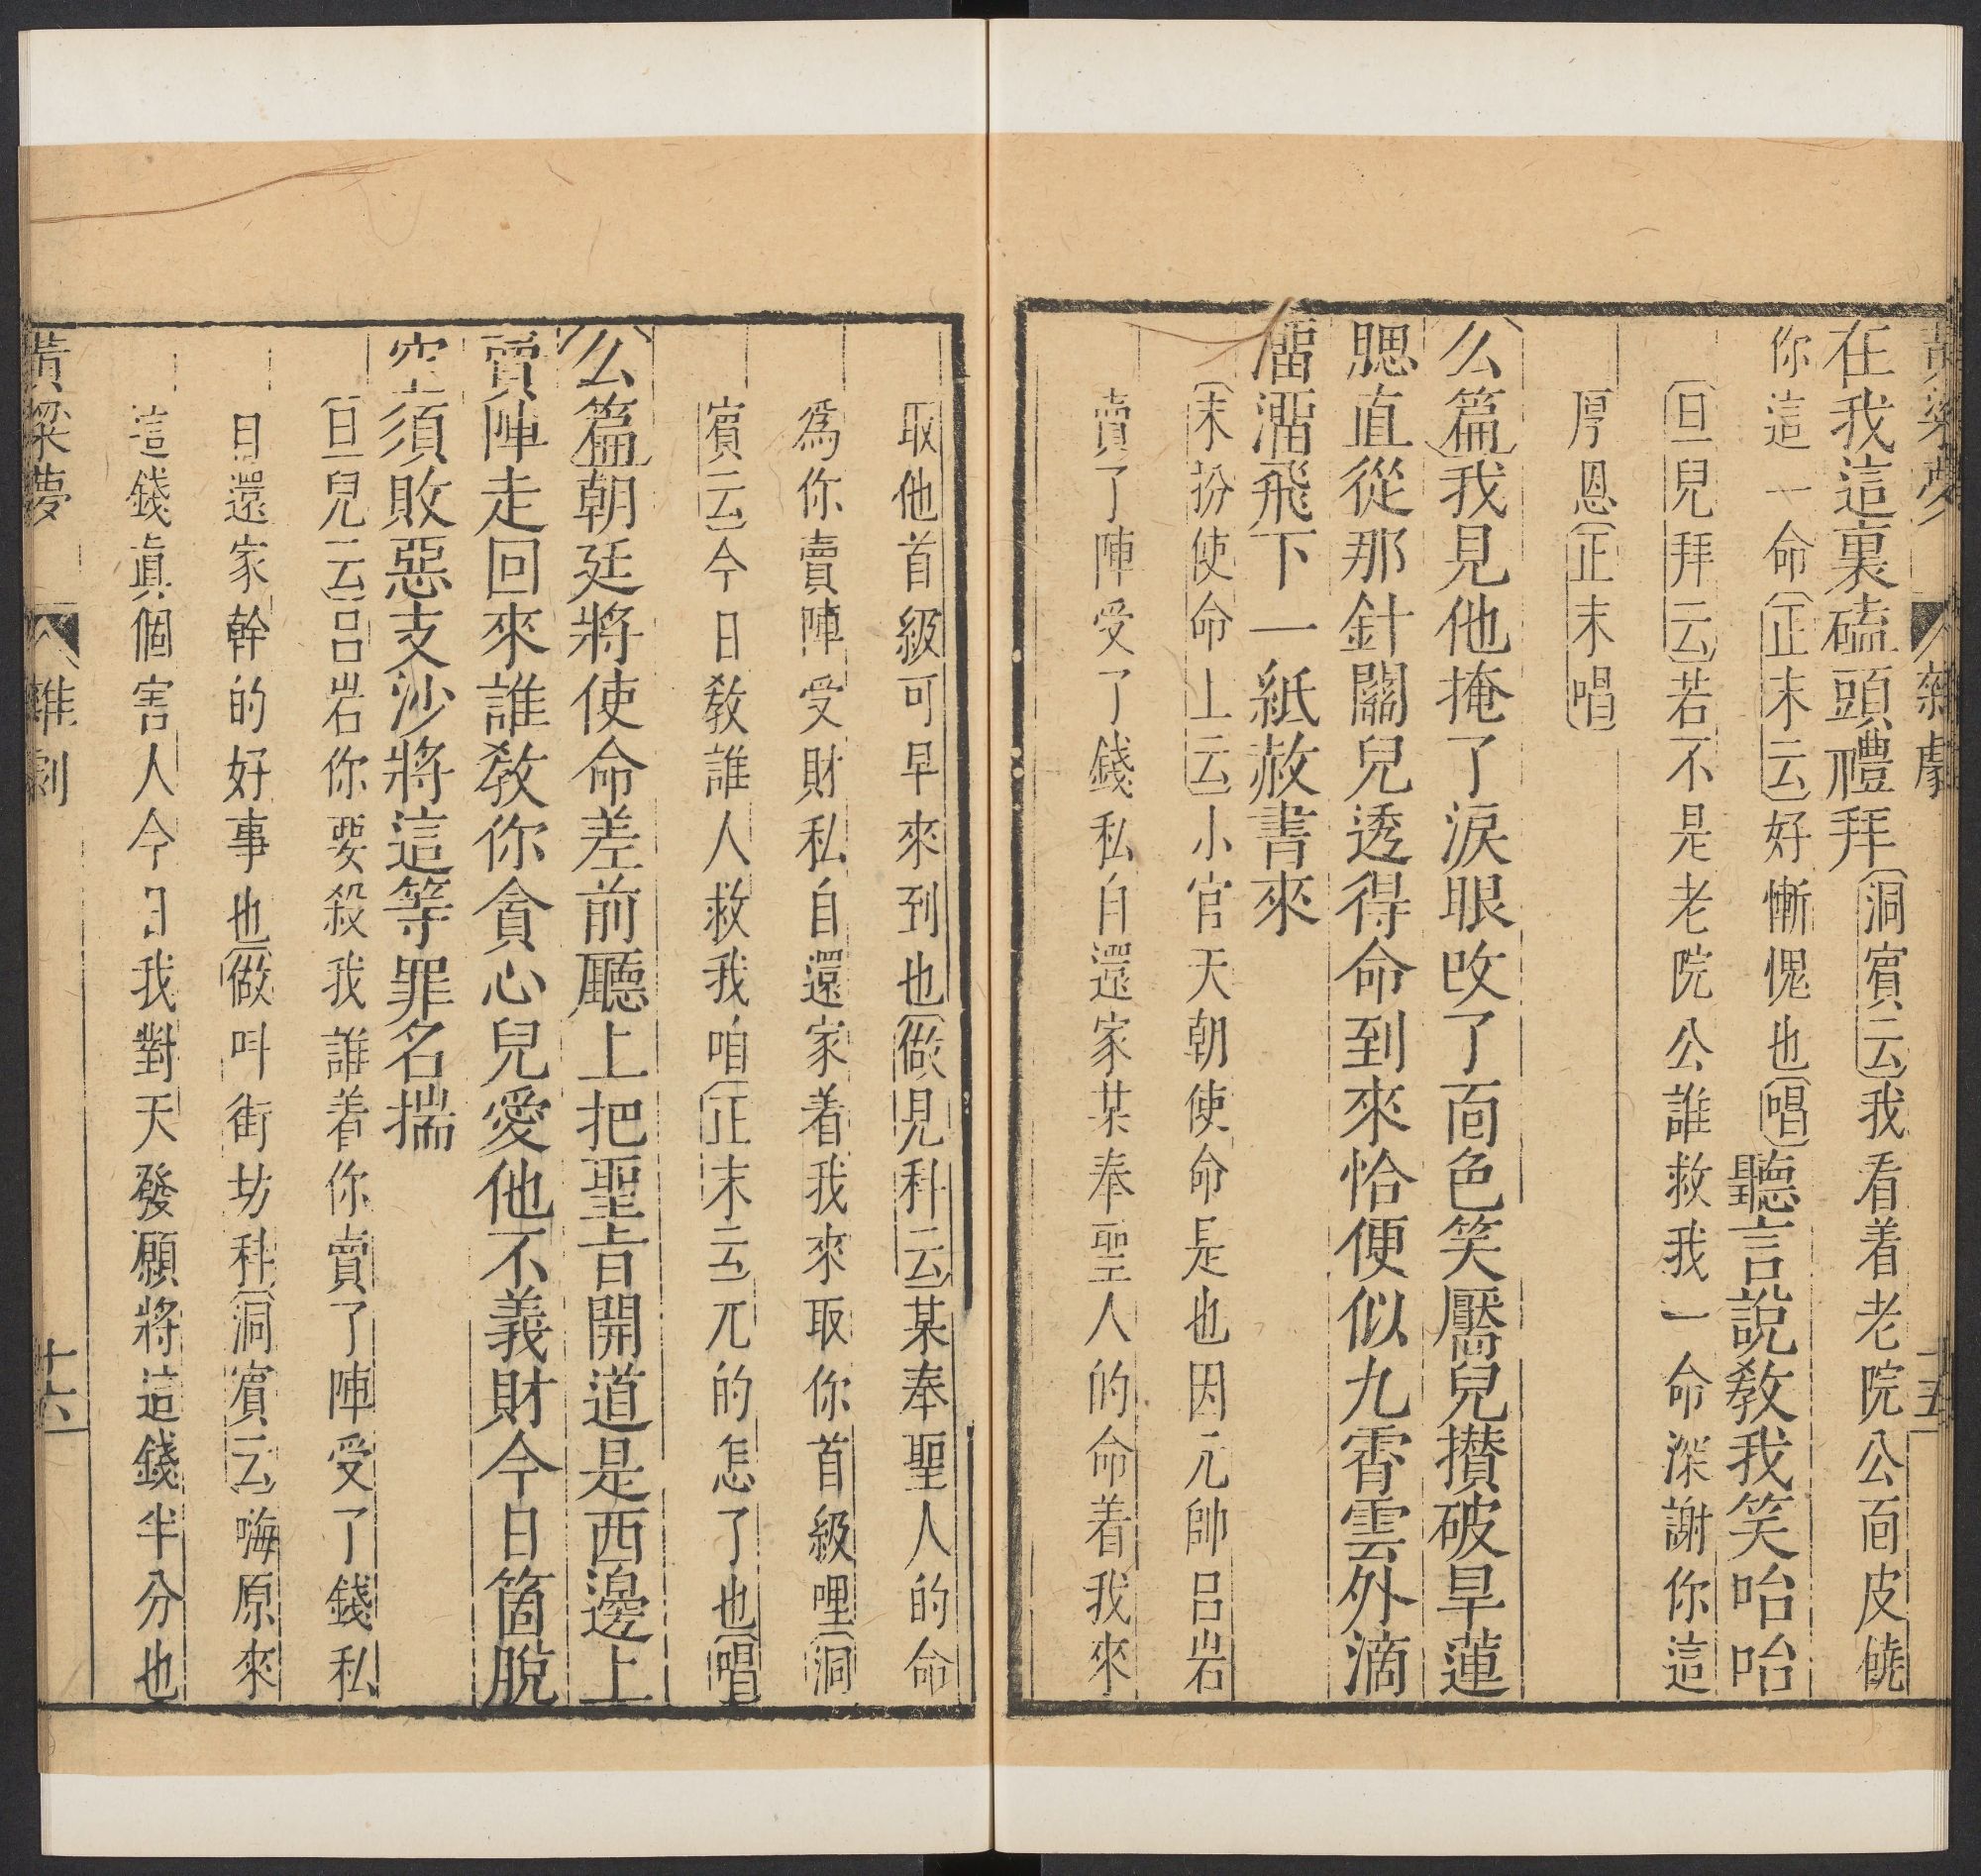 在我這裏磕頭禮拜〔洞賔云〕我看着老院公靣皮饒
你這一命〔正末云〕好慚愧也〔唱〕聽言說敎我笑咍咍
〔旦兒拜云〕若不是老院公誰救我一命深謝你這
厚恩〔正末唱〕
〔么篇〕我見他掩了淚眼攺了靣色笑靨兒攅破旱蓮
腮直從那針關兒透得命到來恰便似九霄雲外滴
溜溜飛下一紙赦書來
〔末扮使命上云〕小官天朝使命是也因元帥呂岩
賣了陣受了錢私自還家某奉聖人的命着我來
取他首級可早來到也〔做見科云〕某奉聖人的命
爲你賣陣受財私自還家着我來取你首級哩〔洞
賔云〕今日敎誰人救我咱〔正末云〕兀的怎了也〔唱〕
〔么篇〕朝廷將使命差前廳上把聖旨開道是西邊上
賣陣走回來誰敎你貪心兒愛他不義財今日箇脫
空須敗惡支沙將這等罪名揣
〔旦兒云〕呂岩你要殺我誰着你賣了陣受了錢私
自還家幹的好事也〔做叫街坊科〕〔洞賔云〕嗨原來
這錢眞個害人今日我對天發願將這錢半分也
黃粱夢 雜劇 十六